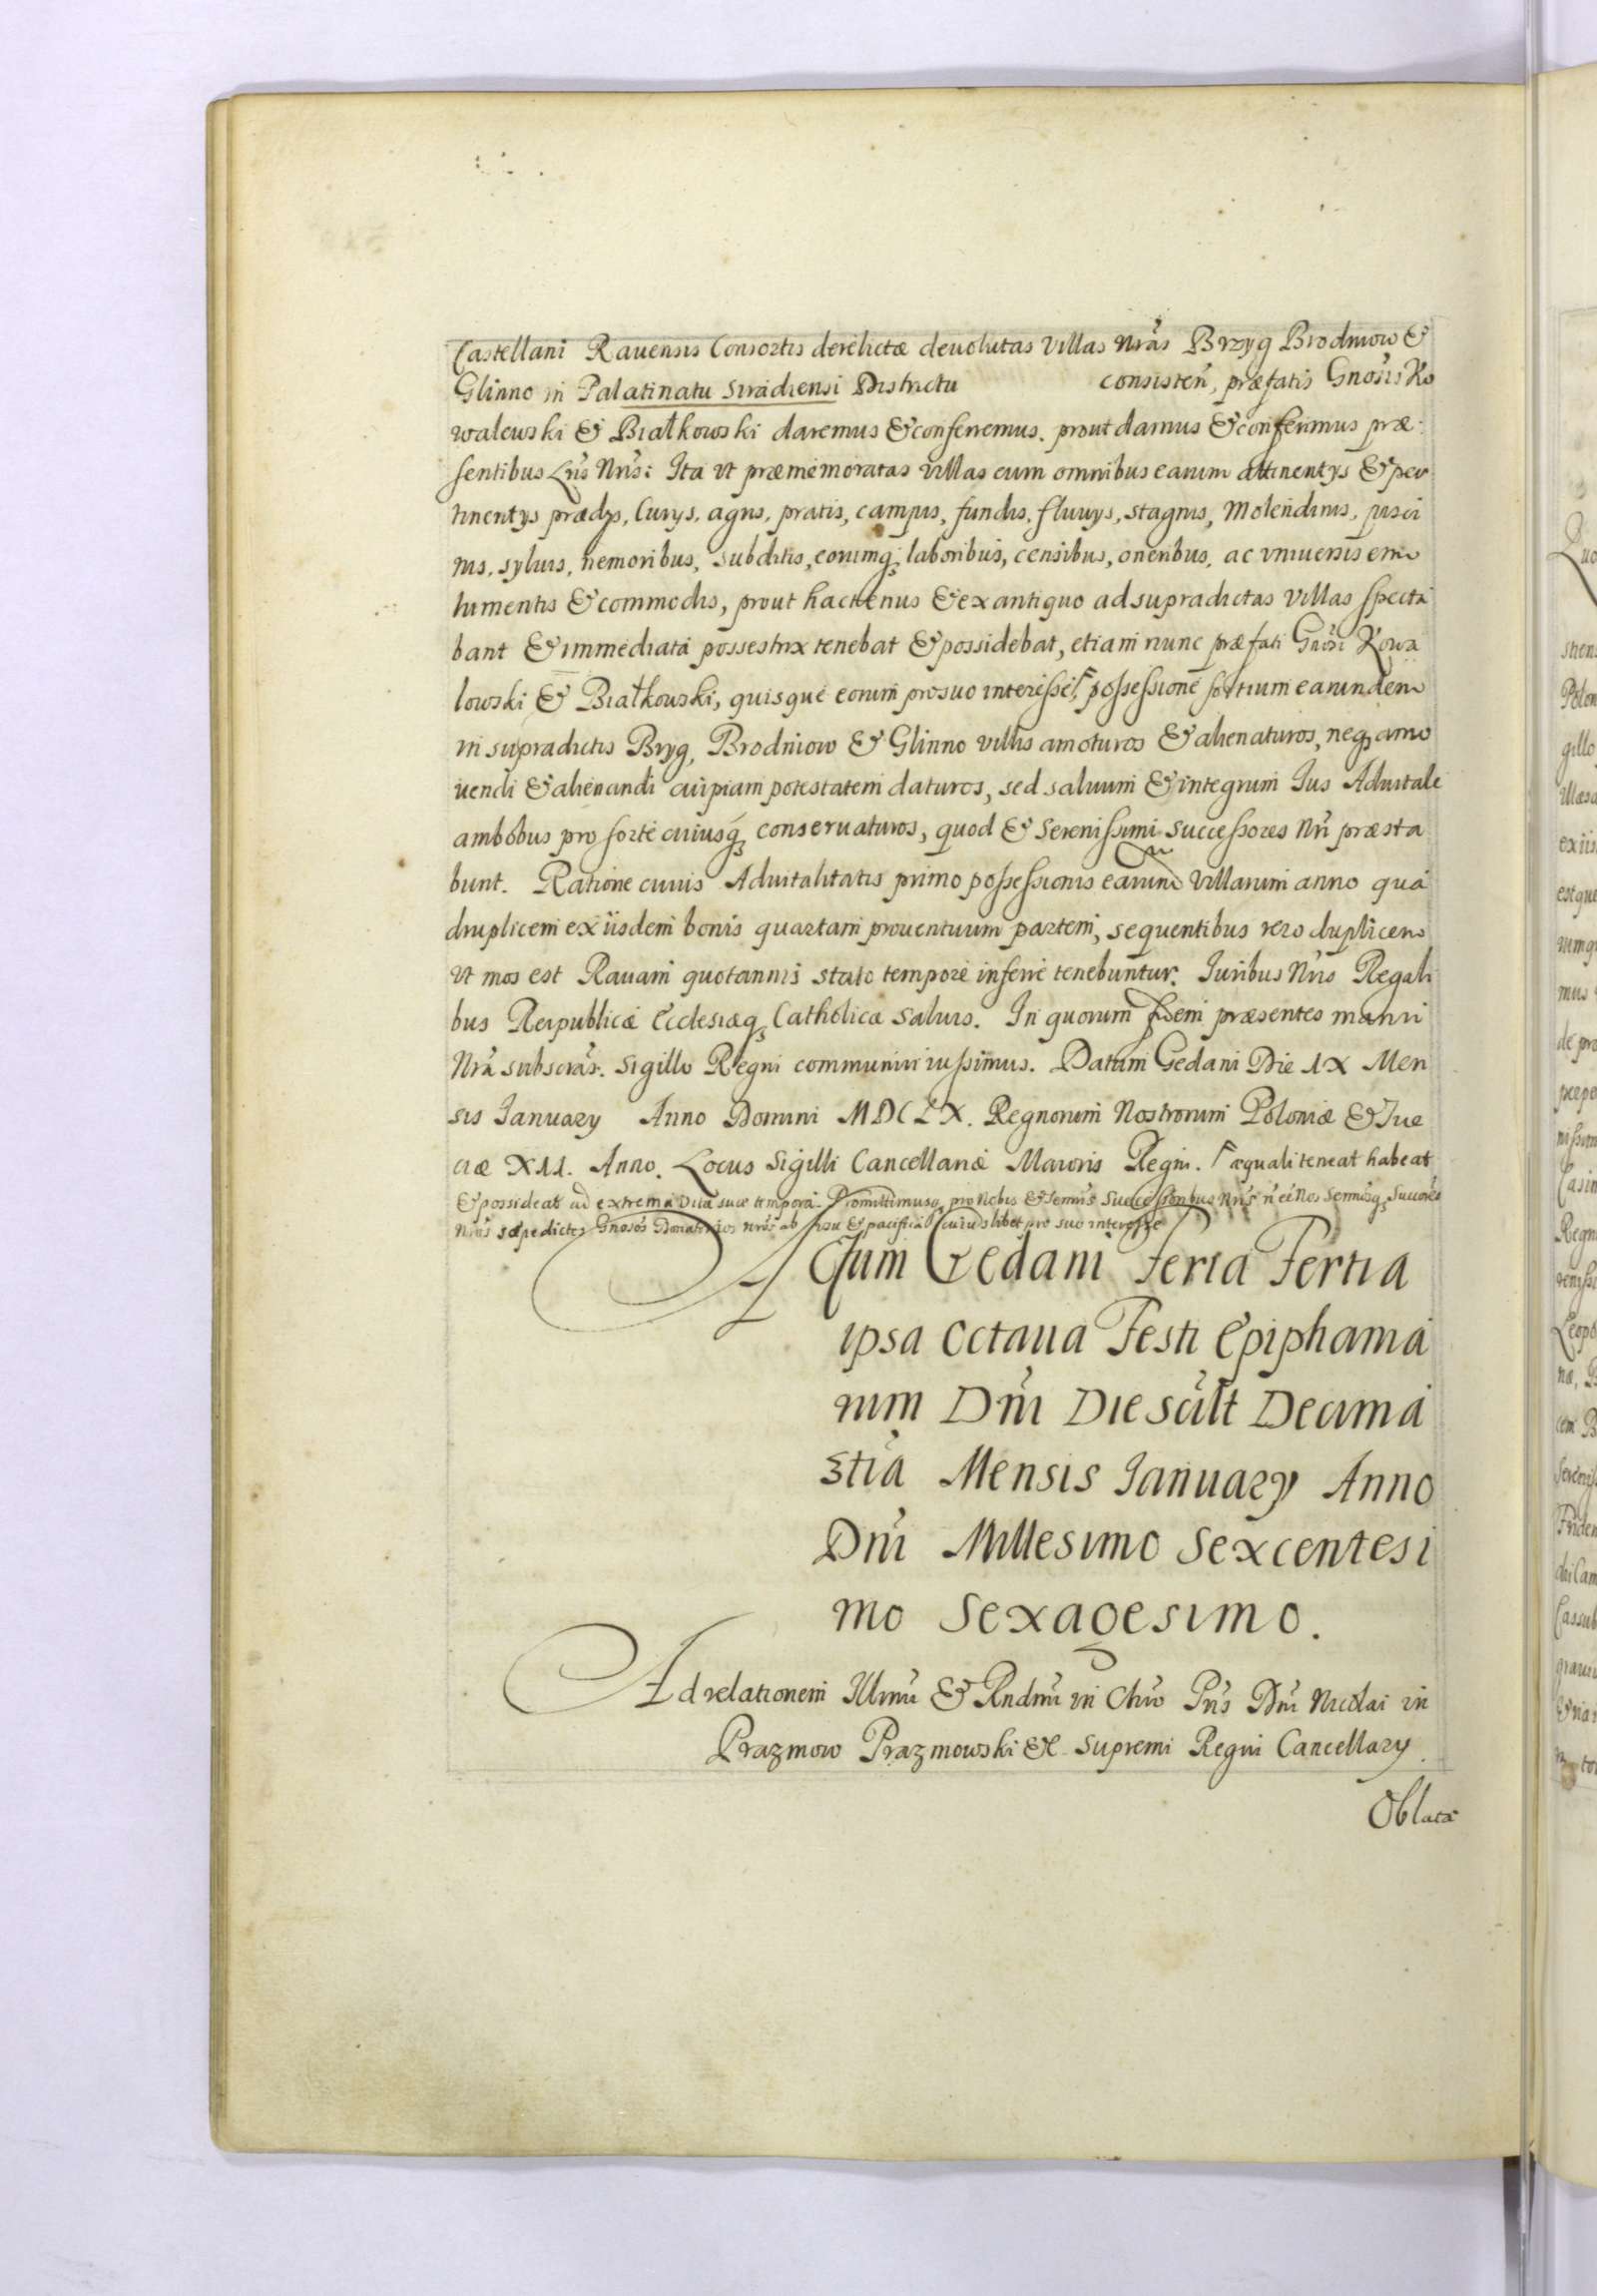 Castellani Rauensis Consortis derelictæ deuolutas Villas nrãs Brzyg Brodniow &
Glinno in Palatinatu Siradiensi Districtu consisteñ, præfatis Gnosis Ko
walewski & Białkowski daremus & conferremus. prout damus & conferimus præ
sentibus Lrĩs Nrĩs: Ita vt præmemoratas villas cum omnibus earum attinentys & per
tinentys prædys, Curys, agris, pratis, campis, fundis, fluuys, stagnis, Molendinis, pisci
nis, syluis, nemoribus, subditis, eorumq; laboribus, censibus, oneribus, ac vniuersis emo
lumentis & commodis, prout hactenus & ex antiquo ad supradictas Villas specta
bant & immediata possestrix tenebat & possidebat, etiam nunc præfati Gnõsi Kowa
lowski & Białkowski, quisque eorum pro suo interesse, ┌ possessione sortium earundem
in supradictis Bryg, Brodniow & Glinno villis amoturos & alienaturos, neq; amo
uendi & alienandi cuipiam potestatem daturos, sed saluum & integrum Ius Aduitale
ambobus pro sorte cuiusq; conseruaturos, quod & Serenissimi Successores Nrĩ præsta
bunt. Ratione cuius Aduitalitatis primo possessionis earum Villarum anno qua
druplicem ex iisdem bonis quartam prouentuum partem, sequentibus vero duplicem
vt mos est Rauam quotannis stato tempore inferre tenebuntur. Iuribus Nrĩs Regali
bus Reipublicæ Ecclesiæq; Catholicæ Saluis. In quorum fidem præsentes manu
Nrã subscrãs. Sigillo Regni communiri iussimus. Datum Gedani Die IX Men
sis January Anno Domini MDCLX. Regnorum Nostrorum Poloniæ & Sue
ciæ XII. Anno. Locus Sigilli Cancellariæ Maioris Regni. ┌ æquali teneat habeat
& possideat ad extrema vitæ suæ tempora. Promittimusq; pro Nobis & Sermis Successoribus Nrĩs neĩ Nos Sermosq; Succores
Nrõs sæpedictos Gnosos Donatarios nrõs ab usu & pacifica cuiuslibet pro suo interesse
Actum Gedani Feria Tertia
ipsa Octaua Festi Epiphania
rum Dnĩ Die scilt Decima
3tia Mensis January Anno
Dnĩ Millesimo Sexcentesi
mo Sexagesimo.
Ad relationem Illmĩ & Rndmĩ in Chro Pris Dnĩ Nicolai in
Prazmow Prazmowski &c Supremi Regni Cancellary.
Oblatæ